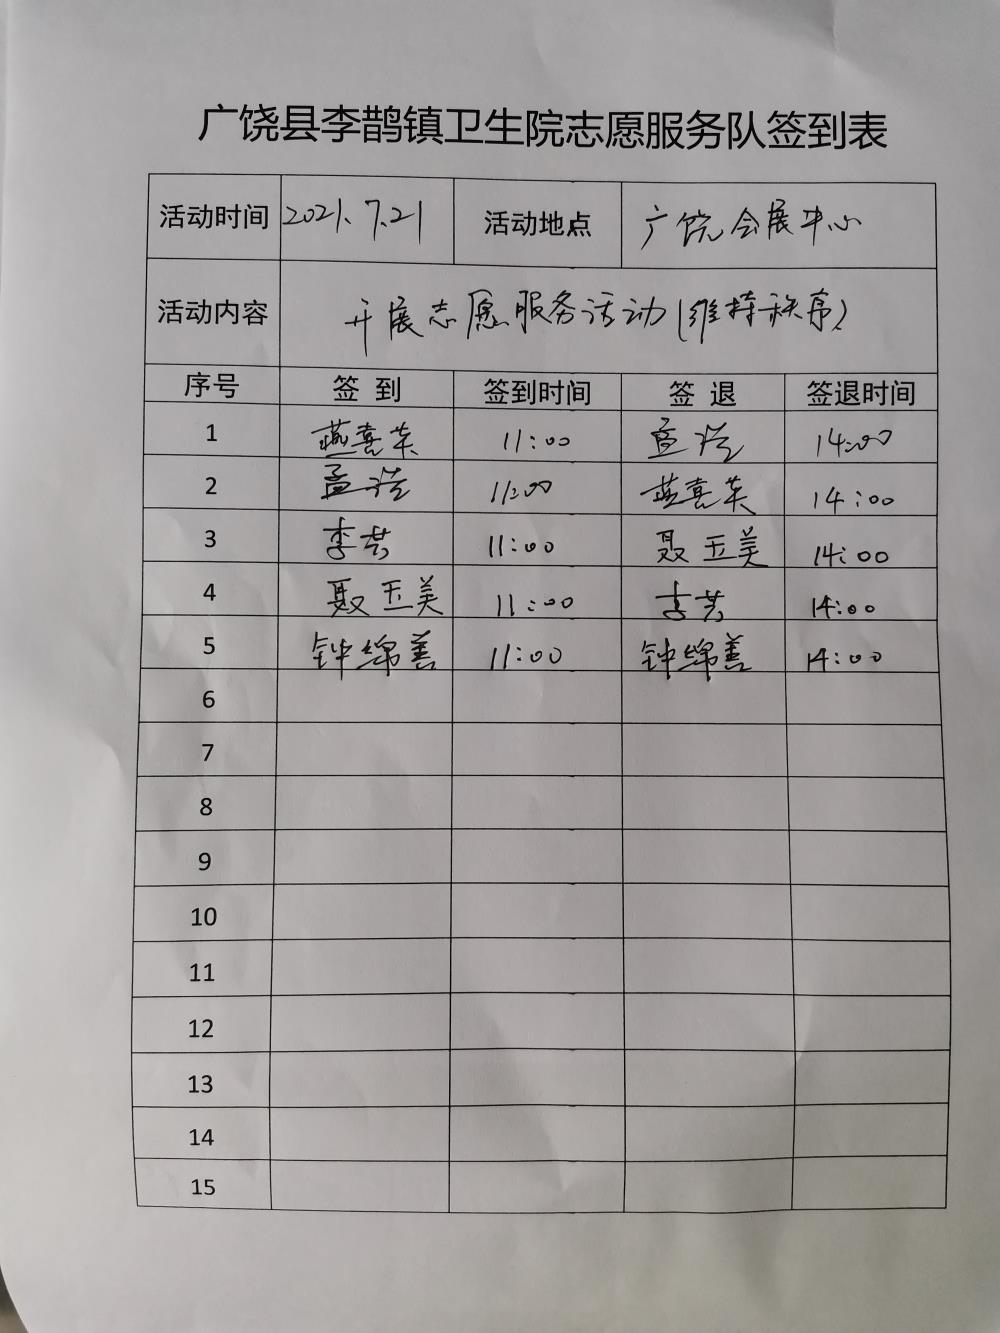 广饶县李鹊镇卫生院志愿服务队签到表
活动时间 2021.7.21 活动地点 广饶会展中心
活动内容 开展志愿服务活动(维持秩序)
序号 签到 签到时间 签退 签退时间
1 燕喜荣 11:00 孟浩 14:00
2 孟浩 11:00 燕喜荣 14:00
3 李芸 11:00 聂玉美 14:00
4 聂玉美 11:00 李芸 14:00
5 钟绵善 11:00 钟绵善 14:00
6
7
8
9
10
11
12
13
14
15